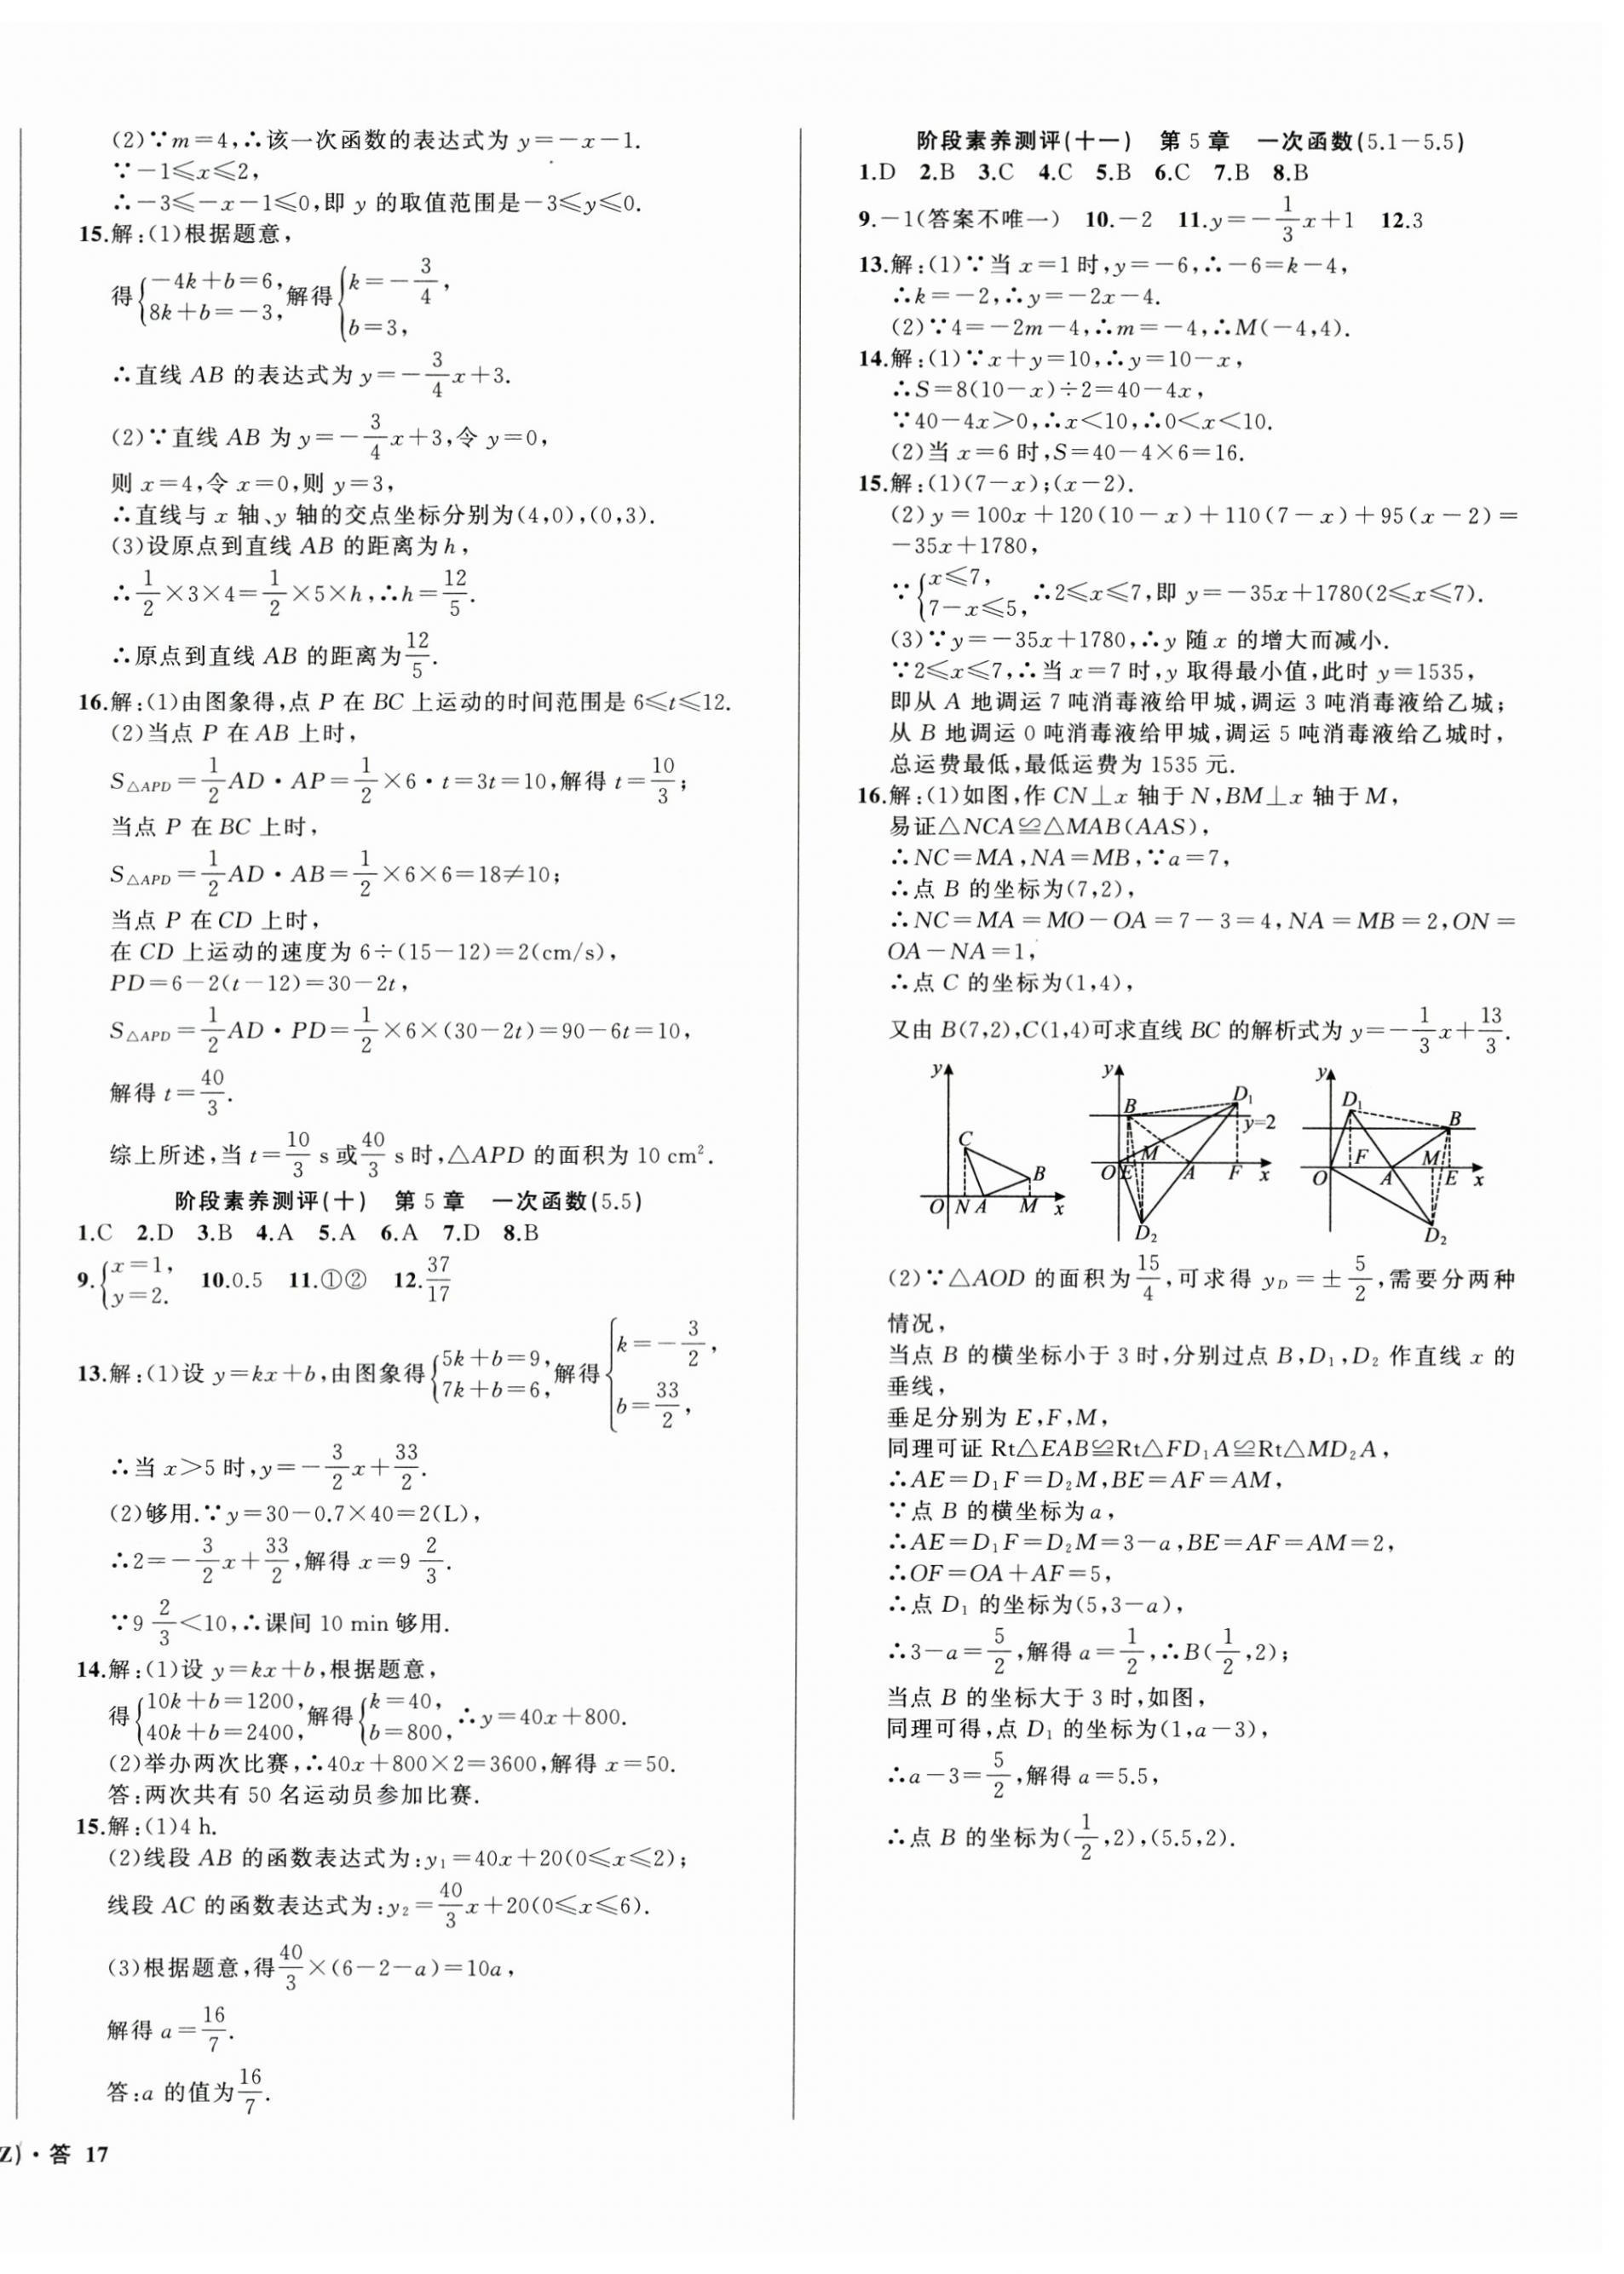 (2)∵m=4,∴该一次函数的表达式为 y=-x-1.
∵-1≤x≤2,
∴-3≤-x-1≤0,即 y 的取值范围是-3≤y≤0.
15.解:(1)根据题意,
得{-4k+b=6, 8k+b=-3, 解得{k=-3/4, b=3,
∴直线 AB 的表达式为 y=-3/4x+3.
(2)∵直线 AB 为 y=-3/4x+3,令 y=0,
则 x=4,令 x=0,则 y=3,
∴直线与 x 轴、y 轴的交点坐标分别为(4,0),(0,3).
(3)设原点到直线 AB 的距离为 h,
∴1/2×3×4=1/2×5×h,∴h=12/5.
∴原点到直线 AB 的距离为12/5.
16.解:(1)由图象得,点 P 在 BC 上运动的时间范围是 6≤t≤12.
(2)当点 P 在 AB 上时,
S△APD=1/2AD·AP=1/2×6·t=3t=10,解得 t=10/3;
当点 P 在 BC 上时,
S△APD=1/2AD·AB=1/2×6×6=18≠10;
当点 P 在 CD 上时,
在 CD 上运动的速度为 6÷(15-12)=2(cm/s),
PD=6-2(t-12)=30-2t,
S△APD=1/2AD·PD=1/2×6×(30-2t)=90-6t=10,
解得 t=40/3.
综上所述,当 t=10/3 s 或40/3 s 时,△APD 的面积为 10 cm².
阶段素养测评(十) 第 5 章 一次函数(5.5)
1.C 2.D 3.B 4.A 5.A 6.A 7.D 8.B
9.{x=1, y=2. 10.0.5 11.①② 12.37/17
13.解:(1)设 y=kx+b,由图象得{5k+b=9, 7k+b=6, 解得{k=-3/2, b=33/2,
∴当 x>5 时,y=-3/2x+33/2.
(2)够用.∵y=30-0.7×40=2(L),
∴2=-3/2x+33/2,解得 x=9 2/3.
∵9 2/3<10,∴课间 10 min 够用.
14.解:(1)设 y=kx+b,根据题意,
得{10k+b=1200, 40k+b=2400, 解得{k=40, b=800, ∴y=40x+800.
(2)举办两次比赛,∴40x+800×2=3600,解得 x=50.
答:两次共有 50 名运动员参加比赛.
15.解:(1)4 h.
(2)线段 AB 的函数表达式为:y₁=40x+20(0≤x≤2);
线段 AC 的函数表达式为:y₂=40/3x+20(0≤x≤6).
(3)根据题意,得40/3×(6-2-a)=10a,
解得 a=16/7.
答:a 的值为16/7.
Z)·答 17
阶段素养测评(十一) 第 5 章 一次函数(5.1-5.5)
1.D 2.B 3.C 4.C 5.B 6.C 7.B 8.B
9.-1(答案不唯一) 10.-2 11.y=-1/3x+1 12.3
13.解:(1)∵当 x=1 时,y=-6,∴-6=k-4,
∴k=-2,∴y=-2x-4.
(2)∵4=-2m-4,∴m=-4,∴M(-4,4).
14.解:(1)∵x+y=10,∴y=10-x,
∴S=8(10-x)÷2=40-4x,
∵40-4x>0,∴x<10,∴0<x<10.
(2)当 x=6 时,S=40-4×6=16.
15.解:(1)(7-x);(x-2).
(2)y=100x+120(10-x)+110(7-x)+95(x-2)=
-35x+1780,
∵{x≤7, 7-x≤5, ∴2≤x≤7,即 y=-35x+1780(2≤x≤7).
(3)∵y=-35x+1780,∴y 随 x 的增大而减小.
∵2≤x≤7,∴当 x=7 时,y 取得最小值,此时 y=1535,
即从 A 地调运 7 吨消毒液给甲城,调运 3 吨消毒液给乙城;
从 B 地调运 0 吨消毒液给甲城,调运 5 吨消毒液给乙城时,
总运费最低,最低运费为 1535 元.
16.解:(1)如图,作 CN⊥x 轴于 N,BM⊥x 轴于 M,
易证△NCA≌△MAB(AAS),
∴NC=MA,NA=MB,∵a=7,
∴点 B 的坐标为(7,2),
∴NC=MA=MO-OA=7-3=4,NA=MB=2,ON=
OA-NA=1,
∴点 C 的坐标为(1,4),
又由 B(7,2),C(1,4)可求直线 BC 的解析式为 y=-1/3x+13/3.
y C B O N A M x
y B D₁ y=2 M O E A F x D₂
y D₁ B F M O A E x D₂
(2)∵△AOD 的面积为15/4,可求得 y_D=±5/2,需要分两种
情况,
当点 B 的横坐标小于 3 时,分别过点 B,D₁,D₂ 作直线 x 的
垂线,
垂足分别为 E,F,M,
同理可证 Rt△EAB≌Rt△FD₁A≌Rt△MD₂A,
∴AE=D₁F=D₂M,BE=AF=AM,
∵点 B 的横坐标为 a,
∴AE=D₁F=D₂M=3-a,BE=AF=AM=2,
∴OF=OA+AF=5,
∴点 D₁ 的坐标为(5,3-a),
∴3-a=5/2,解得 a=1/2,∴B(1/2,2);
当点 B 的坐标大于 3 时,如图,
同理可得,点 D₁ 的坐标为(1,a-3),
∴a-3=5/2,解得 a=5.5,
∴点 B 的坐标为(1/2,2),(5.5,2).